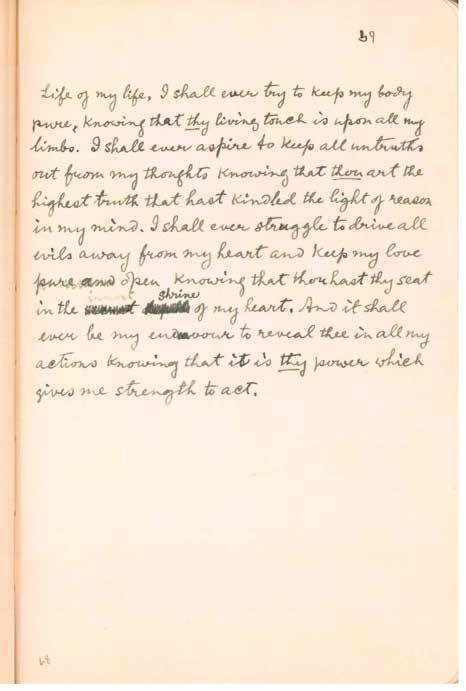 69
Life of my life, I shall ever try to keep my body
pure, knowing that thy living touch is upon all my
limbs. I shall ever aspire to keep all untruths
out from my thoughts knowing that thou art the
highest truth that hast kindled the light of reason
in my mind. I shall ever struggle to drive all
evils away from my heart and keep my love
pure and open, knowing that thou hast thy seat
inmost shrine
in the of my heart. And it shall
ever be my endeavour to reveal thee in all my
actions knowing that it is thy power which
gives me strength to act.
68